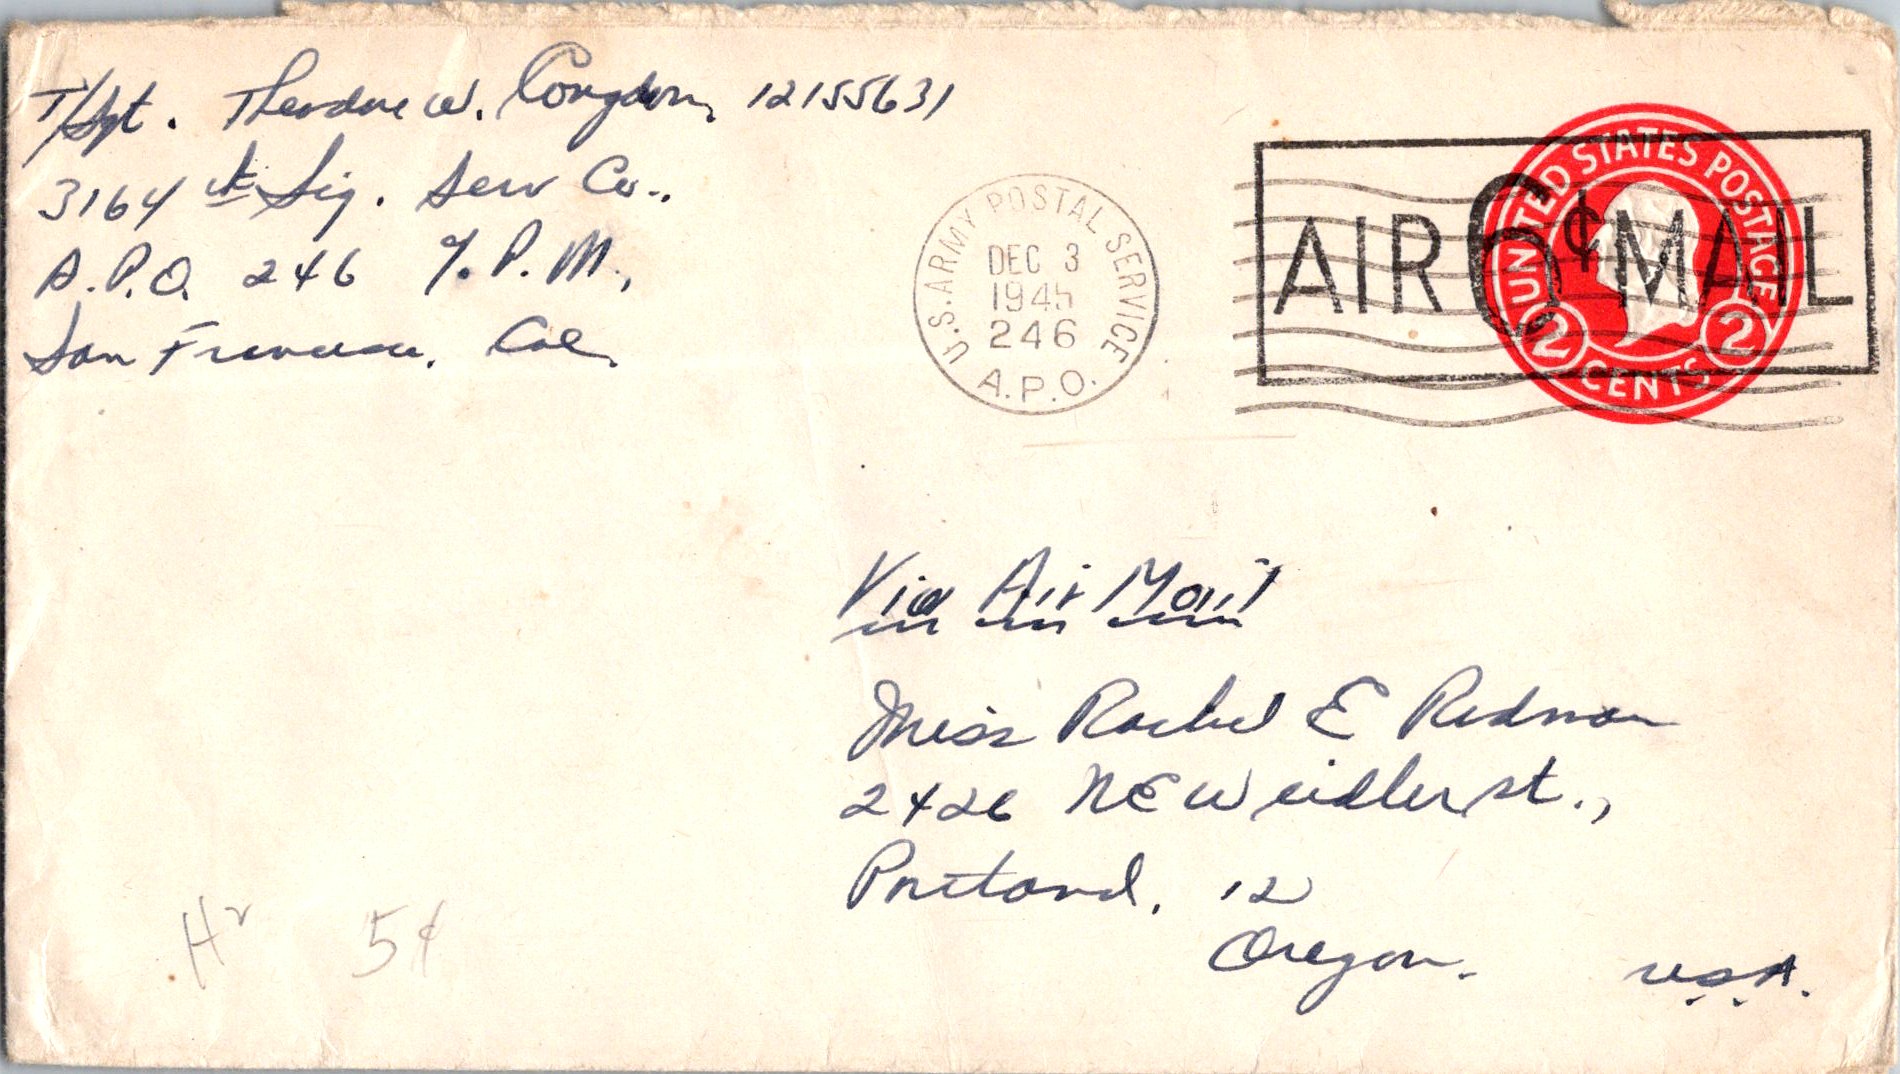 T/Sgt. Theodore W. Congdon, 12155631
3164th Sig. Serv Co.,
A.P.O. 246 %. P.M.,
San Francisco, Cal.
U.S. ARMY POSTAL SERVICE
DEC 3
1945
246
A.P.O.
AIR 6¢ MAIL
UNITED STATES POSTAGE
2 CENTS 2
Via Air Mail
Miss Rachel E Redman
2426 NE Weidler St.,
Portland, 12
Oregon.
U.S.A.
5¢